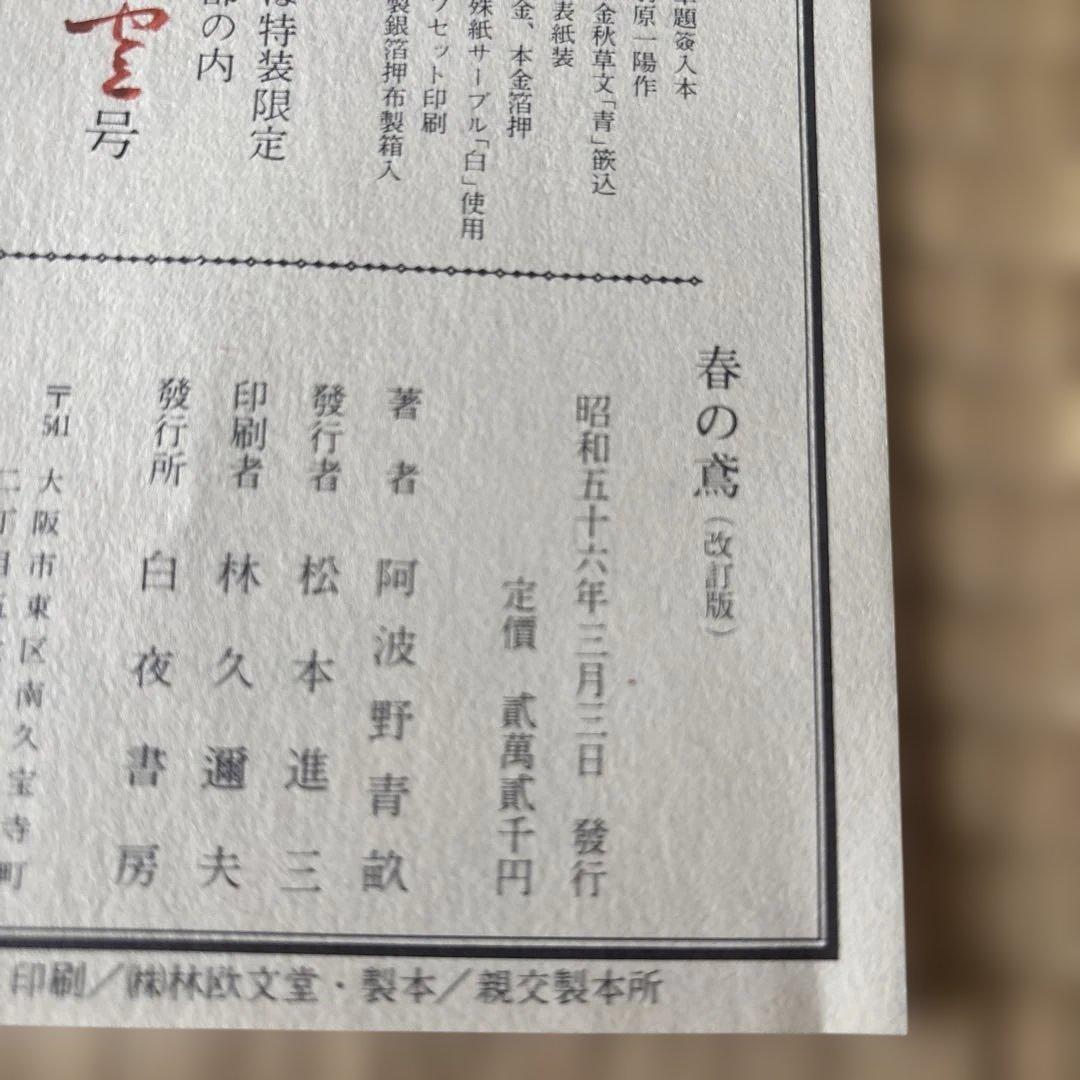 題簽入本
原一陽作
金秋草文「青」嵌込
表紙装
金、本金箔押
殊紙サーブル「白」使用
セット印刷
製銀箔押布製箱入
特装限定
の内
号
春の鳶（改訂版）
昭和五十六年三月三日 發行
定價 貳萬貳千円
著者 阿波野青畝
發行者 松本進三
印刷者 林久邇夫
發行所 白夜書房
〒541 大阪市東区南久宝寺町
二丁目五
印刷／㈱林欧文堂・製本／親交製本所